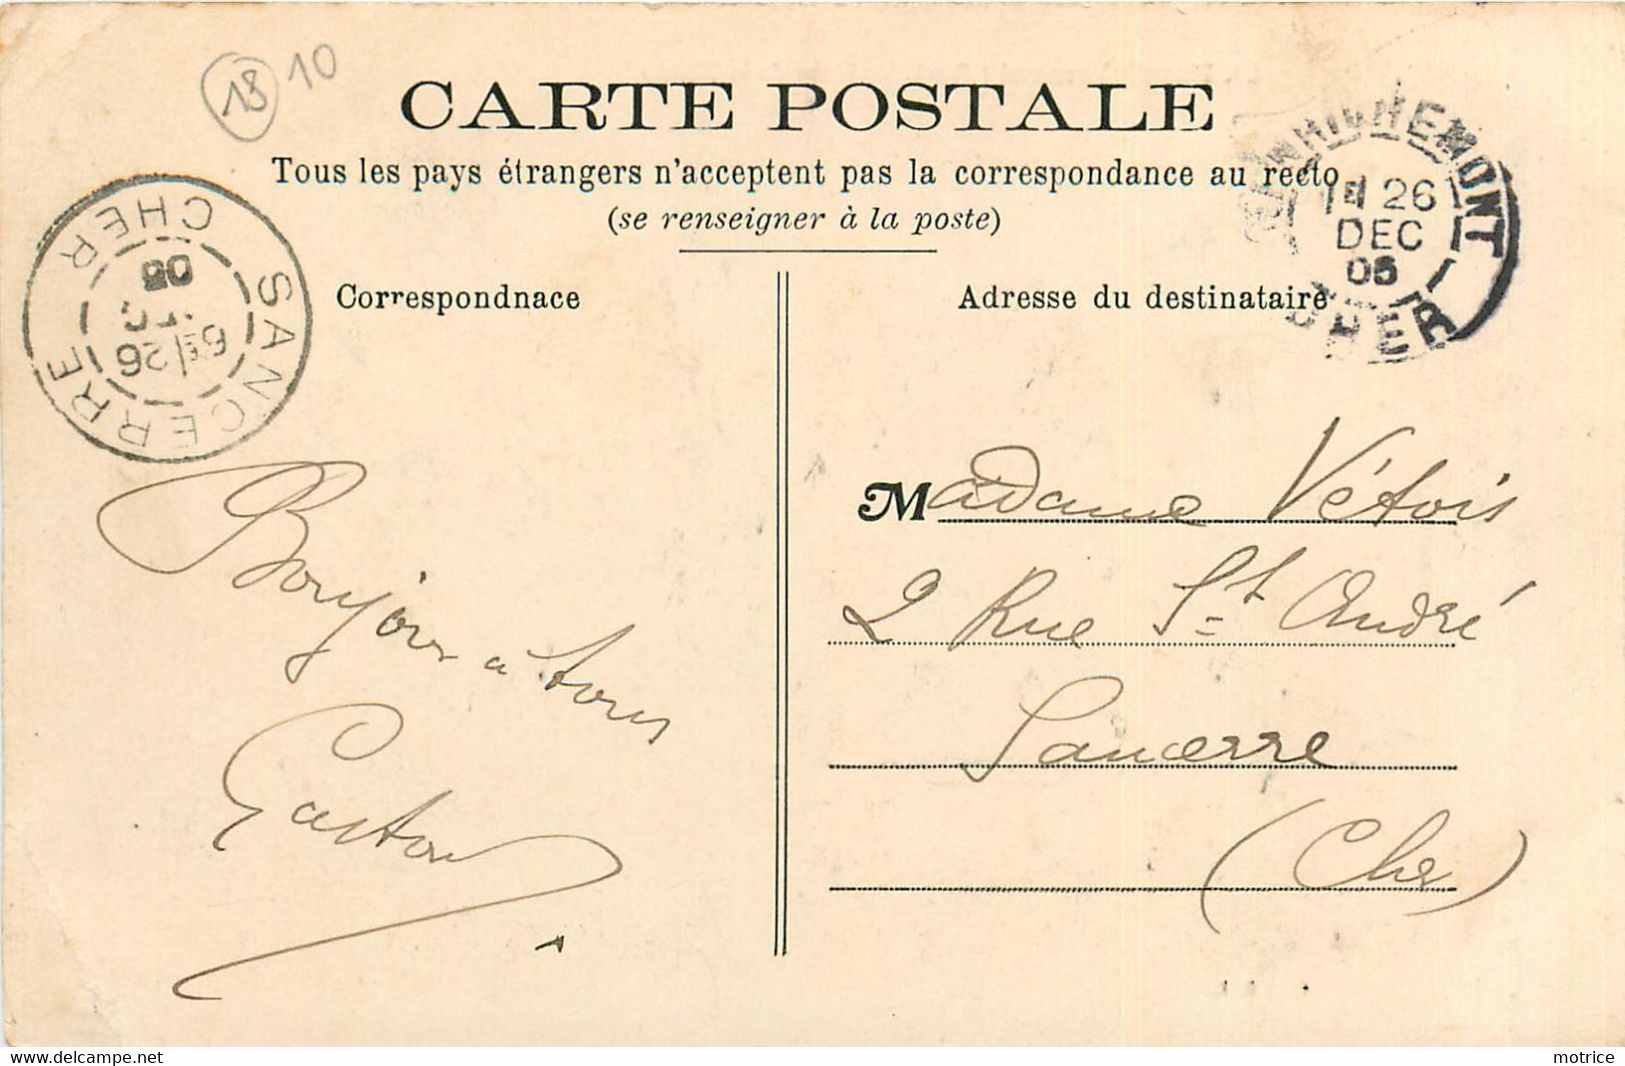 18 10
CARTE POSTALE
Tous les pays étrangers n'acceptent pas la correspondance au recto
(se renseigner à la poste)
HENRICHEMONT
26
DEC
05
CHER
SANCERRE
CHER
26
05
Correspondnace
Adresse du destinataire
Bonjour a tous
Gaston
Madame Vétois
2 Rue St André
Sancerre
(Cher)
www.delcampe.net
motrice